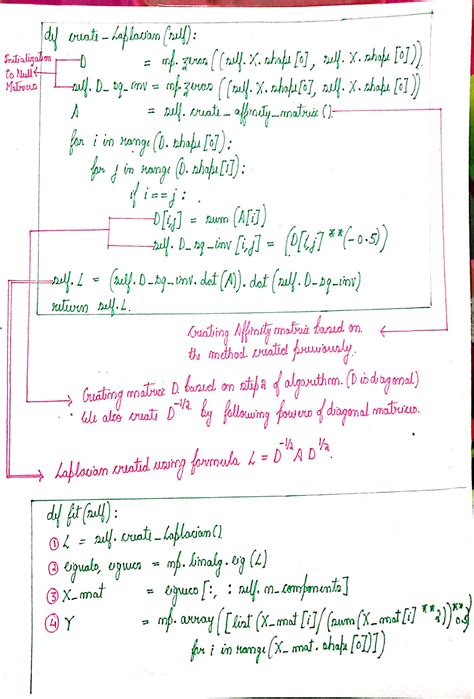 def create_Laplacian(self):
Initialization
to Null
Matrices
D = np.zeros((self.X.shape[0], self.X.shape[0]))
self.D_sq_inv = np.zeros((self.X.shape[0], self.X.shape[0]))
A = self.create_affinity_matrix()
for i in range(D.shape[0]):
for j in range(D.shape[1]):
if i==j:
D[i,j] = sum(A[i])
self.D_sq_inv[i,j] = (D[i,j]**(-0.5))
self.L = (self.D_sq_inv.dot(A)).dot(self.D_sq_inv)
return self.L
Creating Affinity matrix based on
the method created previously.
Creating matrix D based on step 2 of algorithm. (D is diagonal)
We also create D^-1/2 by following powers of diagonal matrices.
Laplacian created using formula L = D^-1/2 A D^1/2.
def fit(self):
① L = self.create_Laplacian()
② eigvals, eigvecs = np.linalg.eig(L)
③ X_mat = eigvecs[:, :self.n_components]
④ Y = np.array([list(X_mat[i]/(sum(X_mat[i]**2))**0.5)
for i in range(X_mat.shape[0])])